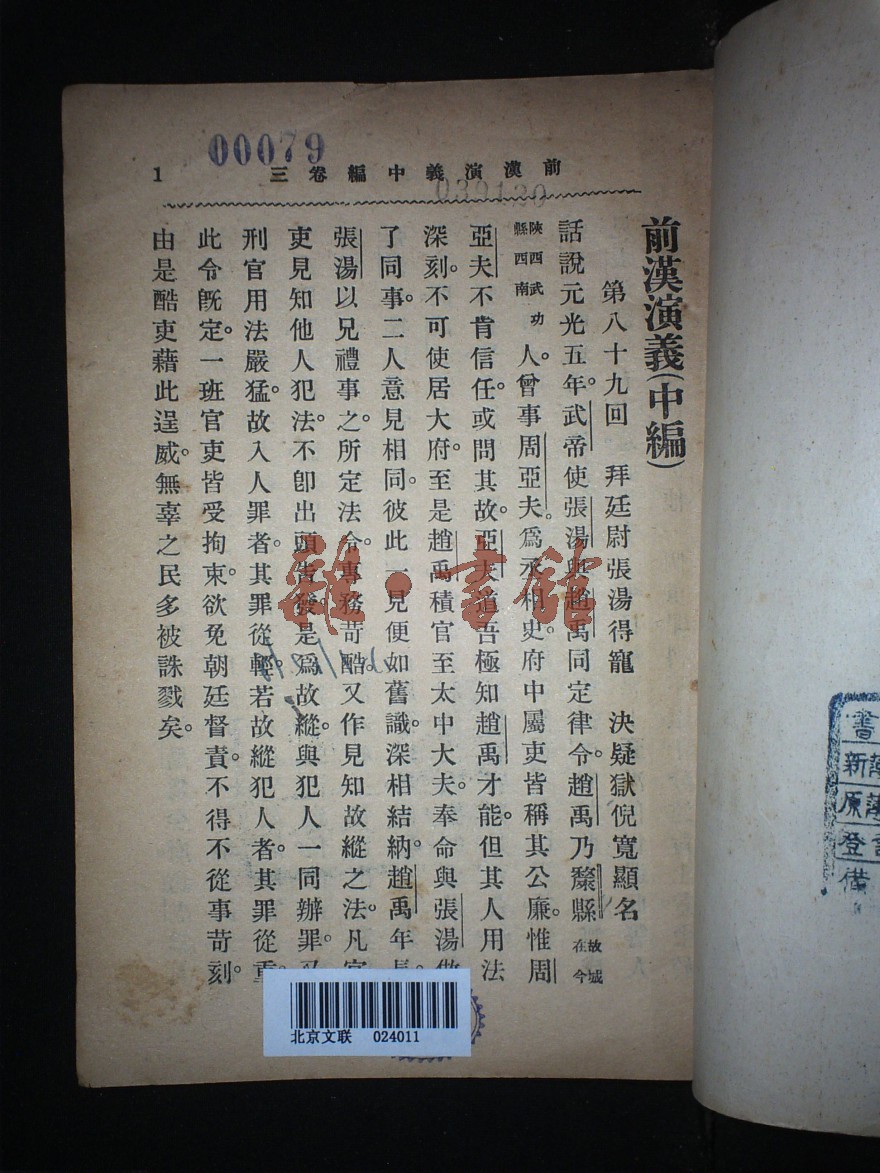 00079
1
三卷編中義演漢前
039120
前漢演義(中編)
第八十九回　拜廷尉張湯得寵　決疑獄倪寬顯名
話說元光五年。武帝使張湯與趙禹同定律令。趙禹乃斄縣故城在今
陝西武功縣西南人。曾事周亞夫。爲丞相史。府中屬吏皆稱其公廉。惟周
亞夫不肯信任。或問其故。亞夫道吾極知趙禹才能。但其人用法
深刻。不可使居大府。至是趙禹積官至太中大夫。奉命與張湯
了同事。二人意見相同。彼此一見便如舊識。深相結納。趙禹年
張湯以兄禮事之。所定法令。專務苛酷。又作見知故縱之法。凡
吏見知他人犯法。不卽出頭告發。是爲故縱。與犯人一同辦罪。
刑官用法嚴猛。故入人罪者。其罪從輕。若故縱犯人者。其罪從重。
此令旣定。一班官吏皆受拘束。欲免朝廷督責。不得不從事苛刻。
由是酷吏藉此逞威。無辜之民多被誅戮矣。
雜·書館
北京文联 024011
書
新
原
登
備